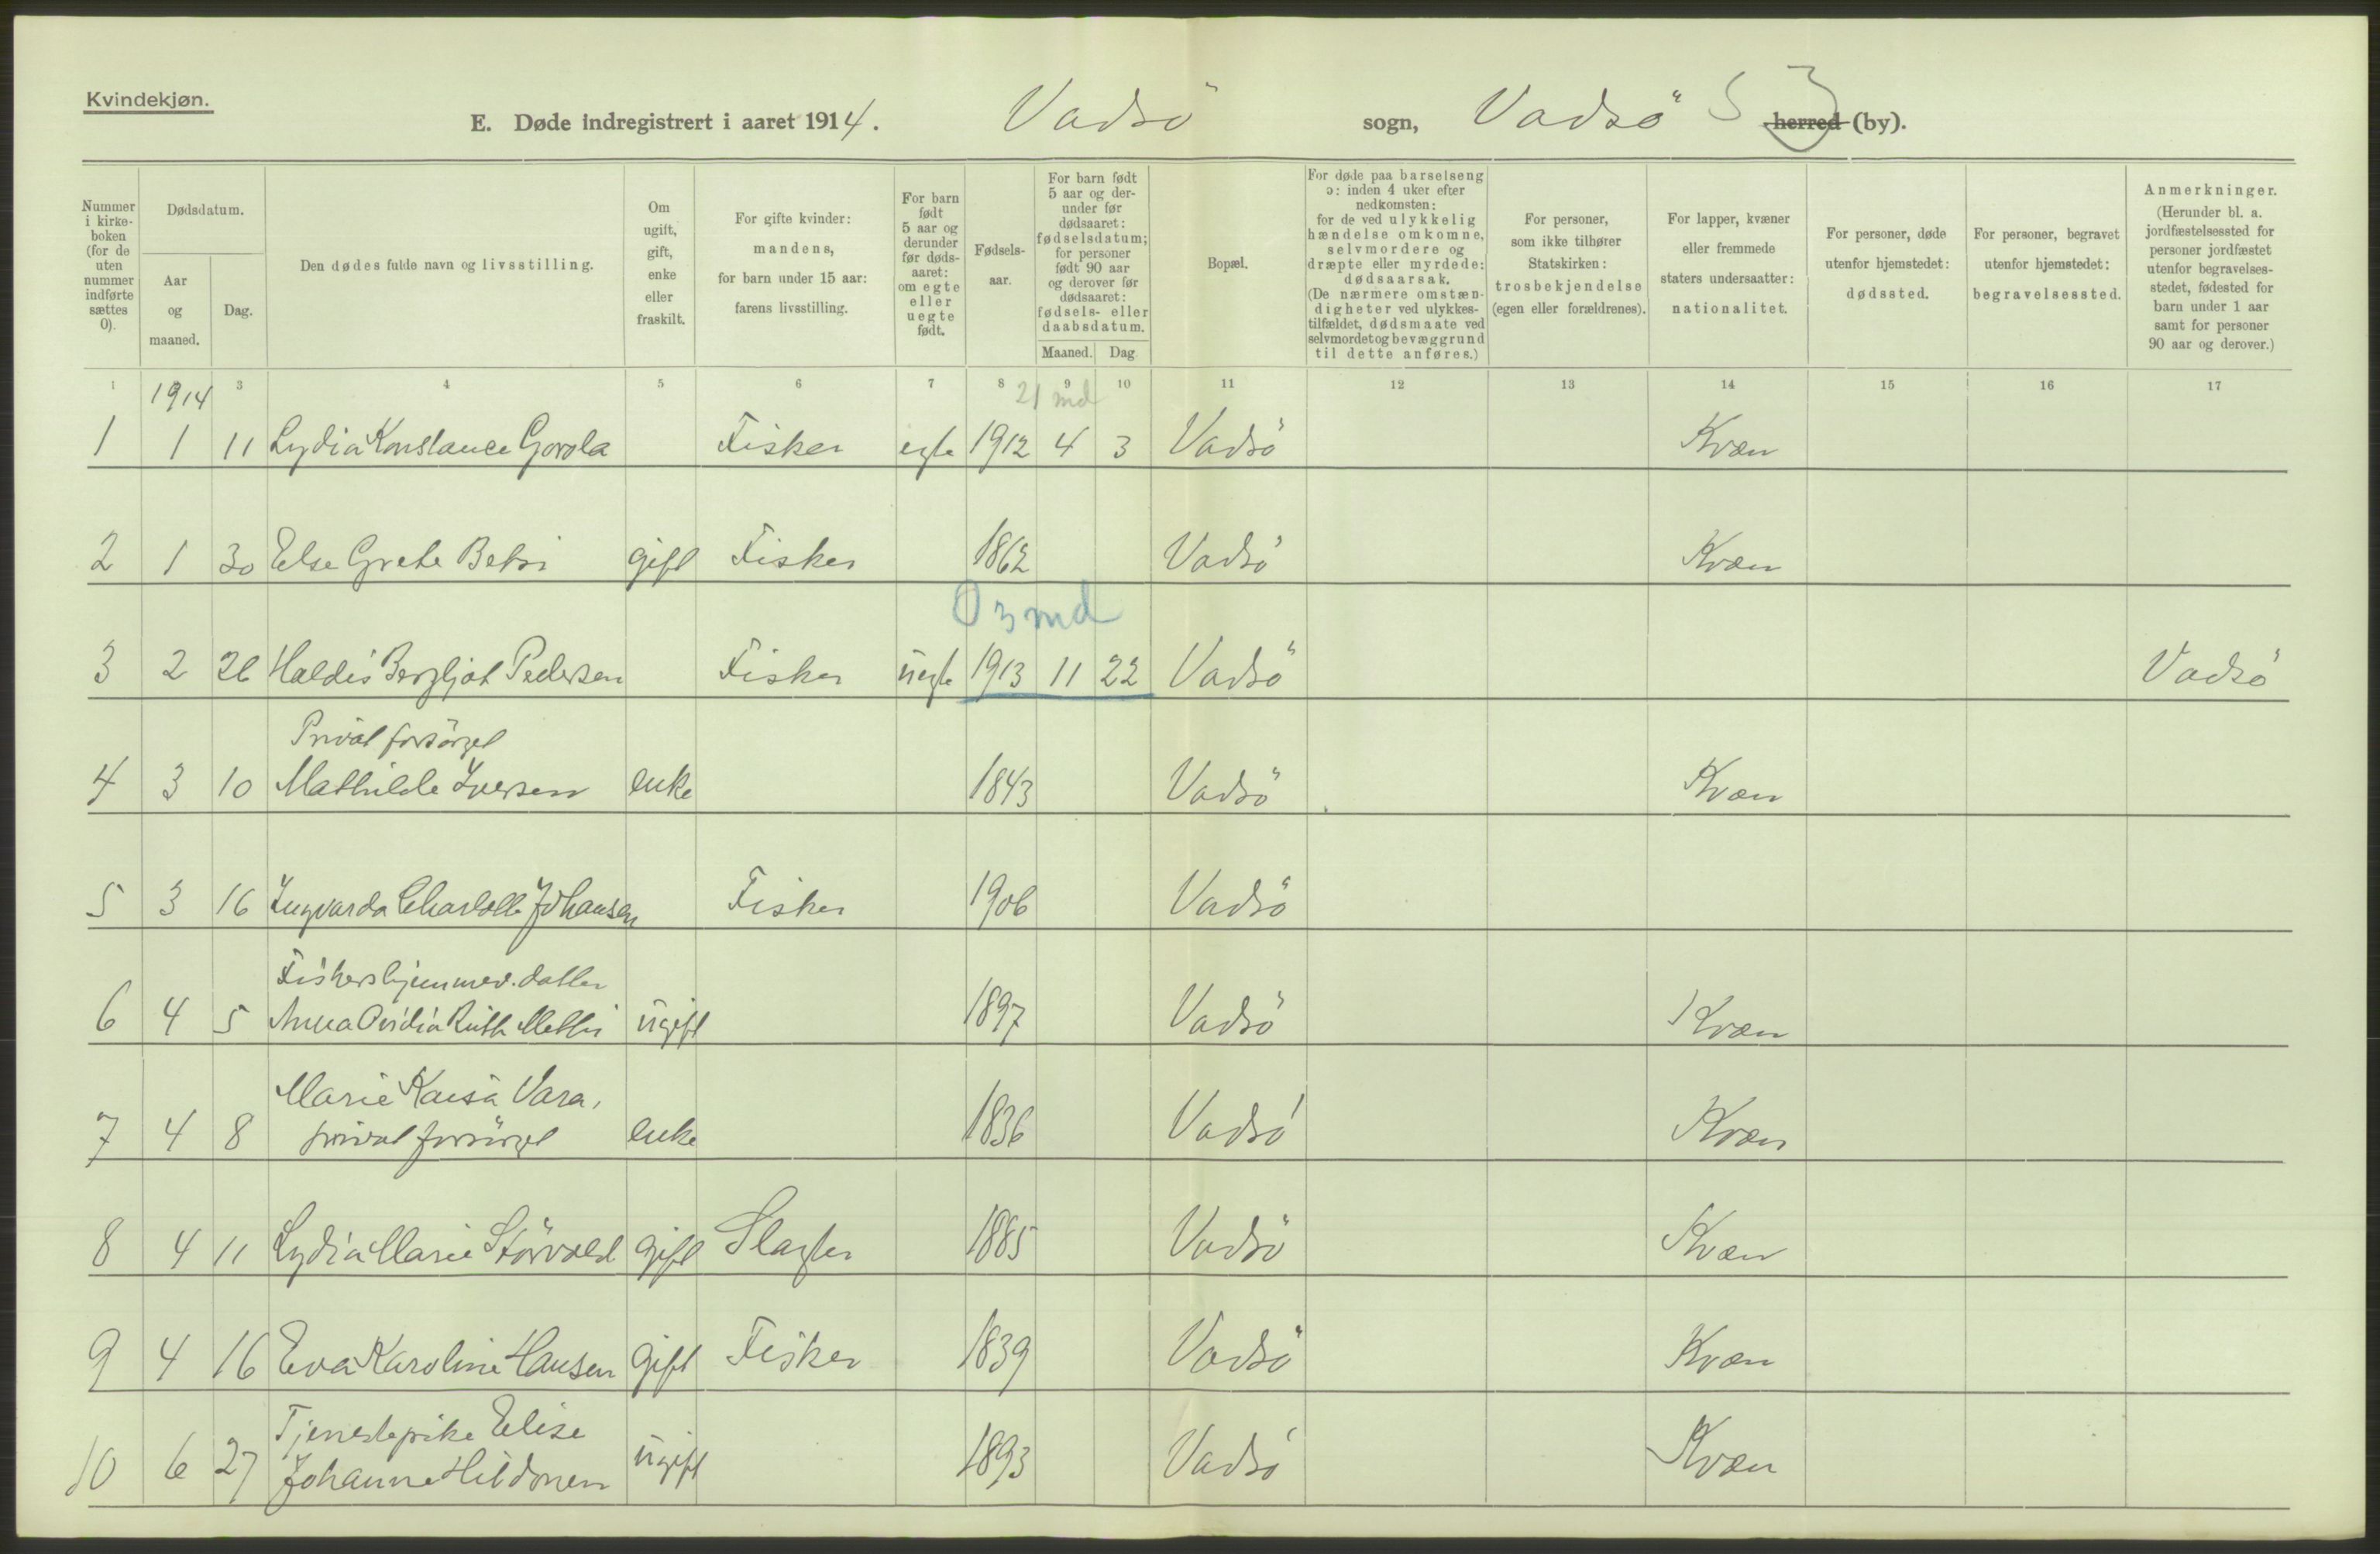 Kvindekjøn.
E. Døde indregistrert i aaret 1914. Vadsö sogn, Vadsö herred (by).
Nummer i kirkeboken (for de uten nummer indførte sættes 0).
Dødsdatum.
Aar og maaned.
Dag.
Den dødes fulde navn og livsstilling.
Om ugift, gift, enke eller fraskilt.
For gifte kvinder: mandens, for barn under 15 aar: farens livsstilling.
For barn født 5 aar og derunder før dødsaaret: om egte eller uegte født.
Fødselsaar.
For barn født 5 aar og derunder før dødsaaret: fødselsdatum; for personer født 90 aar og derover før dødsaaret: fødsels- eller daabsdatum.
Maaned. Dag
Bopæl.
For døde paa barselseng ɔ: inden 4 uker efter nedkomsten: for de ved ulykkelig hændelse omkomne, selvmordere og dræpte eller myrdede: dødsaarsak. (De nærmere omstændigheter ved ulykkestilfældet, dødsmaate ved selvmordet og bevæggrund til dette anføres.)
For personer, som ikke tilhører Statskirken: trosbekjendelse (egen eller forældrenes).
For lapper, kvæner eller fremmede staters undersaatter: nationalitet.
For personer, døde utenfor hjemstedet: dødssted.
For personer, begravet utenfor hjemstedet: begravelsessted.
Anmerkninger. (Herunder bl. a. jordfæstelsessted for personer jordfæstet utenfor begravelsesstedet, fødested for barn under 1 aar samt for personer 90 aar og derover.)
1 3 4 5 6 7 8 9 10 11 12 13 14 15 16 17
1914
21 md
1 1 11 Lydia Konstance Gorola Fisker egte 1912 4 3 Vadsö Kvæn
2 1 30 Else Grete Betsi gift Fisker 1862 Vadsö Kvæn
0 3 md
3 2 26 Haldis Bergljot Pedersen Fisker uegte 1913 11 22 Vadsö Vadsö
Privat forsörget
4 3 10 Mathilde Iversen enke 1843 Vadsö Kvæn
5 3 16 Ingvarda Charlotte Johansen Fisker 1906 Vadsö
Fisker hjemmev. datter
6 4 5 Anna Ovidia Ruth Metti ugift 1897 Vadsö Kvæn
Marie Kaisa Vara,
7 4 8 privat forsörget enke 1836 Vadsö Kvæn
8 4 11 Lydia Marie Störvold gift Slagter 1885 Vadsö Kvæn
9 4 16 Eva Karoline Hansen gift Fisker 1839 Vadsö Kvæn
Tjenestepike Elise
10 6 27 Johanne Hildonen ugift 1893 Vadsö Kvæn